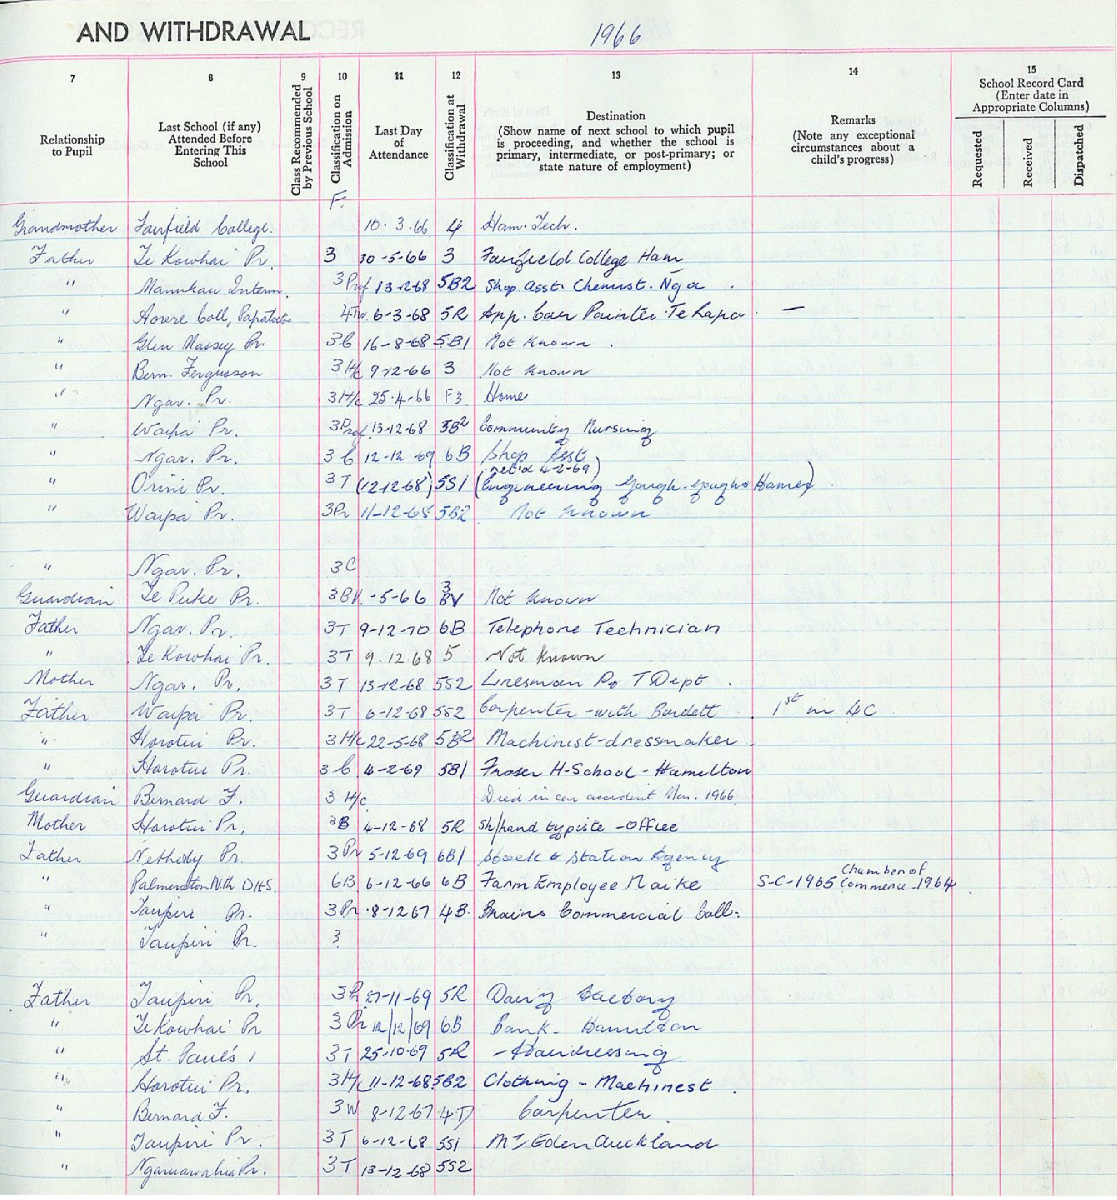 AND WITHDRAWAL 1966
7 8 9 10 11 12 13 14 15
Relationship to Pupil
Last School (if any) Attended Before Entering This School
Class Recommended by Previous School
Classification on Admission
Last Day of Attendance
Classification at Withdrawal
Destination (Show name of next school to which pupil is proceeding, and whether the school is primary, intermediate, or post-primary; or state nature of employment)
Remarks (Note any exceptional circumstances about a child's progress)
School Record Card (Enter date in Appropriate Columns)
Requested Received Dispatched
F.
Grandmother Fairfield College. 10-3-66 4 Ham. Tech.
Father Te Kowhai Pr. 3 30-5-66 3 Fairfield College Ham
" Manukau Interm. 3Prof 13-12-68 5B2 Shop asst Chemist. Nga.
" Aorere Coll, 6-3-68 5R App. Car Painter Te Rapa. —
" Glen Massey Pr. 3C 16-8-68 5B1 Not Known.
" Bern. Fergusson 3H/c 9-12-66 3 Not Known
" Ngar. Pr. 3H/c 25-4-66 F3 Home
" Waipa Pr. 3Prof. 13-12-68 5B2 Community Nursing
" Ngar. Pr. 3C 12-12-69 6B Shop Asst
" Orini Pr. 3T (12-12-68) 5S1 (ret'd 4-2-69) (Engineering Gough Gough & Hamer)
" Waipa Pr. 3Pr 11-12-68 5B2 Not Known
" Ngar. Pr. 3C
Guardian Te Puke Pr. 3BV -5-66 3BV Not Known
Father Ngar. Pr. 3T 9-12-70 6B Telephone Technician
" Te Kowhai Pr. 3T 9.12.68 5 Not Known
Mother Ngar. Pr. 3T 13-12-68 5S2 Linesman Po T Dept.
Father Waipa Pr. 3T 6-12-68 5S2 Carpenter - with Burdett. 1st in 4C
" Horotiu Pr. 3H/c 22-5-68 5B2 Machinist-dressmaker
" Horotiu Pr. 3C 4-2-69 5B1 Fraser H-School - Hamilton
Guardian Bernard F. 3 H/c. Died in car accident Nov. 1966.
Mother Horotiu Pr. 3B 4-12-68 5R Sh/hand typiste - Office
Father Netherby Pr. 3Pr 5-12-69 6B1 Stock & Station Agency
" Palmerston Nth DHS. 6B 6-12-66 6B Farm Employee S-C-1965 Chamber of Commerce-1964
" Taupiri Pr. 3Pr. 8-12-67 4B. Brains Commercial Coll.
" Taupiri Pr. 3
Father Taupiri Pr. 27-11-69 5R Dairy Factory
" Te Kowhai Pr 3 Pr 12/12/69 6B Bank - Hamilton
" St. Paul's 3T 25-10-69 5R - Hairdressing
" Horotiu Pr. 3H/c 11-12-68 5B2 Clothing - Machinest.
" Bernard F. 3W 8-12-67 4T Carpenter.
" Taupiri Pr. 3T 6-12-68 5S1 Mt Eden Auckland
" Ngaruawahia Pr. 3T 13-12-68 5S2